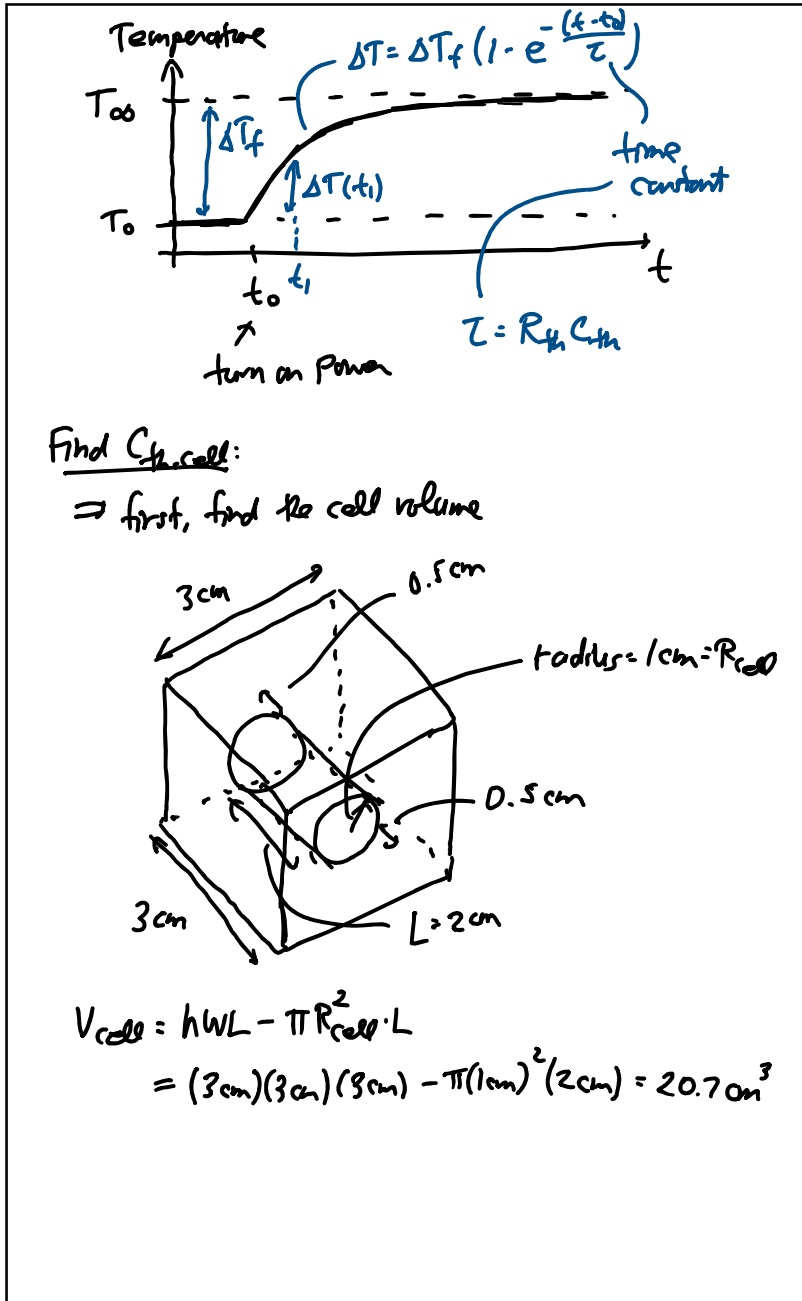 Temperature
ΔT = ΔT_f (1 - e^{-(t-t_0)/τ})
T_∞
ΔT_f
time
constant
ΔT(t_1)
T_0
t
t_0
t_1
τ = R_th C_th
turn on Power
Find C_th,cell:
⇒ first, find the cell volume
3cm
0.5cm
radius = 1cm = R_cell
0.5cm
3cm
L = 2cm
V_cell = hWL - πR_cell^2 · L
= (3cm)(3cm)(3cm) - π(1cm)^2(2cm) = 20.7cm^3